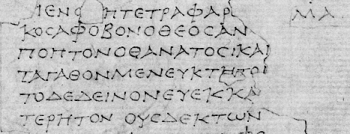 ΜΕΝΟ ΗΤΕΤΡΑΦΑΡ ΜΑ
ΚΟΣΑΦΟΒΟΝΟΘΕΟΣΑΝ
ΠΟΠΤΟΝΟΘΑΝΑΤΟΣΚΑΙ
ΤΑΓΑΘΟΝΜΕΝΕΥΚΤΗΤΟΝ
ΤΟΔΕΔΕΙΝΟΝΕΥΕΚΚΑ
ΤΕΡΗΤΟΝ ΟΥΣΔΕΚΤΩΝ